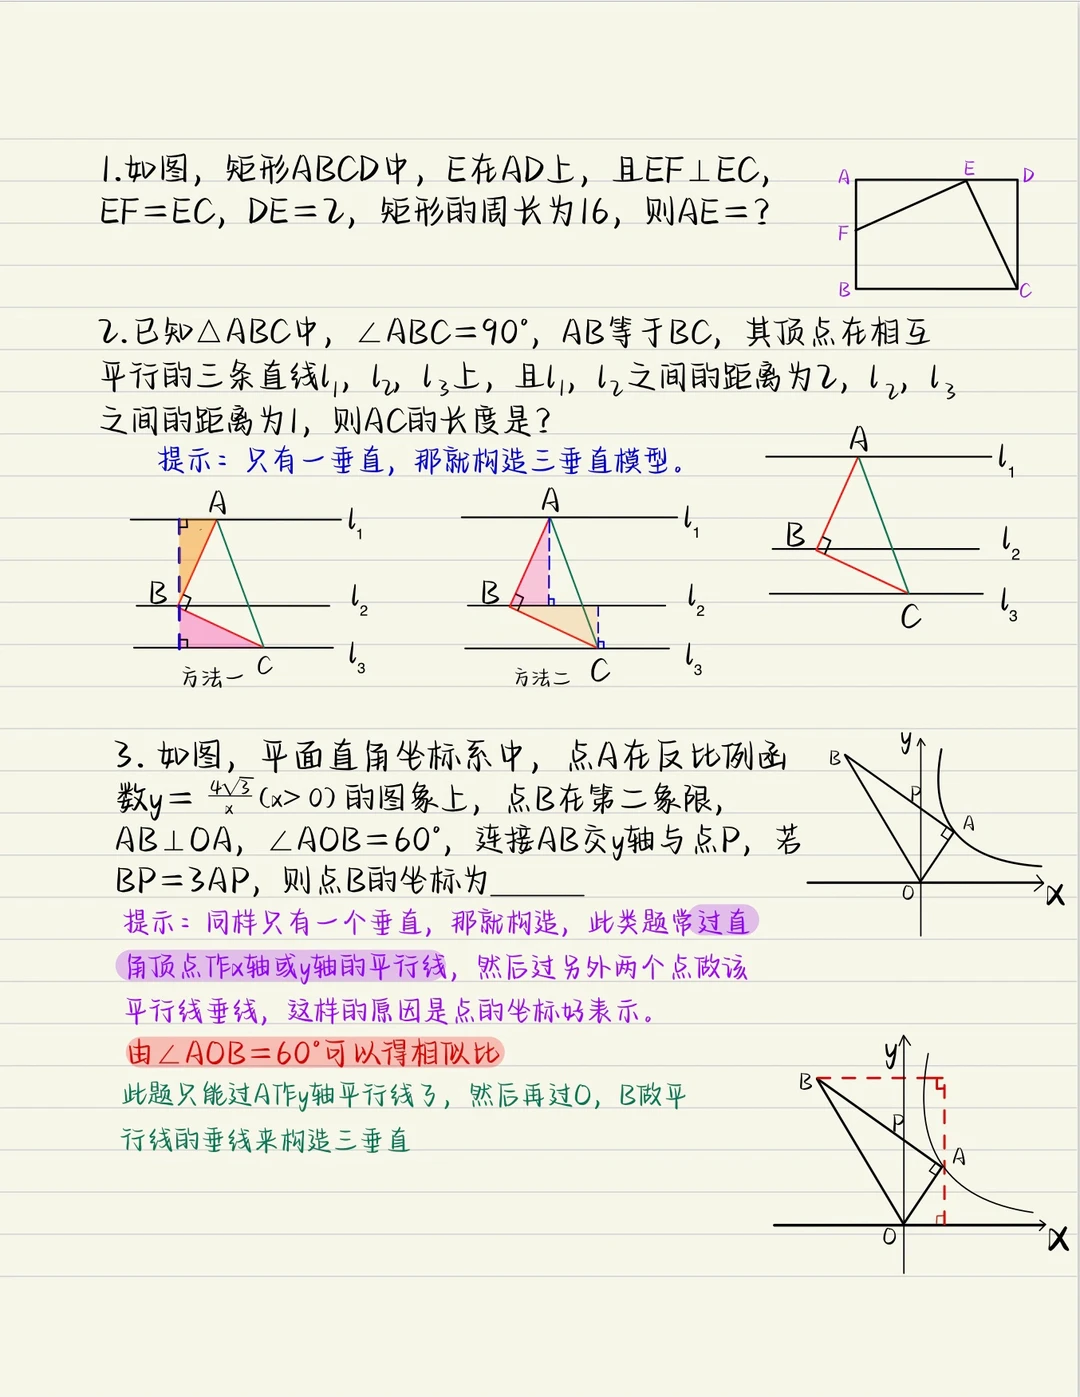 1.如图，矩形ABCD中，E在AD上，且EF⊥EC，
EF=EC，DE=2，矩形的周长为16，则AE=?
A E D
F
B C
2.已知△ABC中，∠ABC=90°，AB等于BC，其顶点在相互
平行的三条直线l₁，l₂，l₃上，且l₁，l₂之间的距离为2，l₂，l₃
之间的距离为1，则AC的长度是?
提示：只有一垂直，那就构造三垂直模型。
A l₁
B l₂
C l₃
方法一
A l₁
B l₂
C l₃
方法二
A l₁
B l₂
C l₃
3. 如图，平面直角坐标系中，点A在反比例函
数y=4√3/x(x>0)的图象上，点B在第二象限，
AB⊥OA，∠AOB=60°，连接AB交y轴与点P，若
BP=3AP，则点B的坐标为______
y
B
P
A
O
x
提示：同样只有一个垂直，那就构造，此类题常过直
角顶点作x轴或y轴的平行线，然后过另外两个点做该
平行线垂线，这样的原因是点的坐标好表示。
由∠AOB=60°可以得相似比
此题只能过A作y轴平行线了，然后再过O，B做平
行线的垂线来构造三垂直
y
B
P
A
O
x